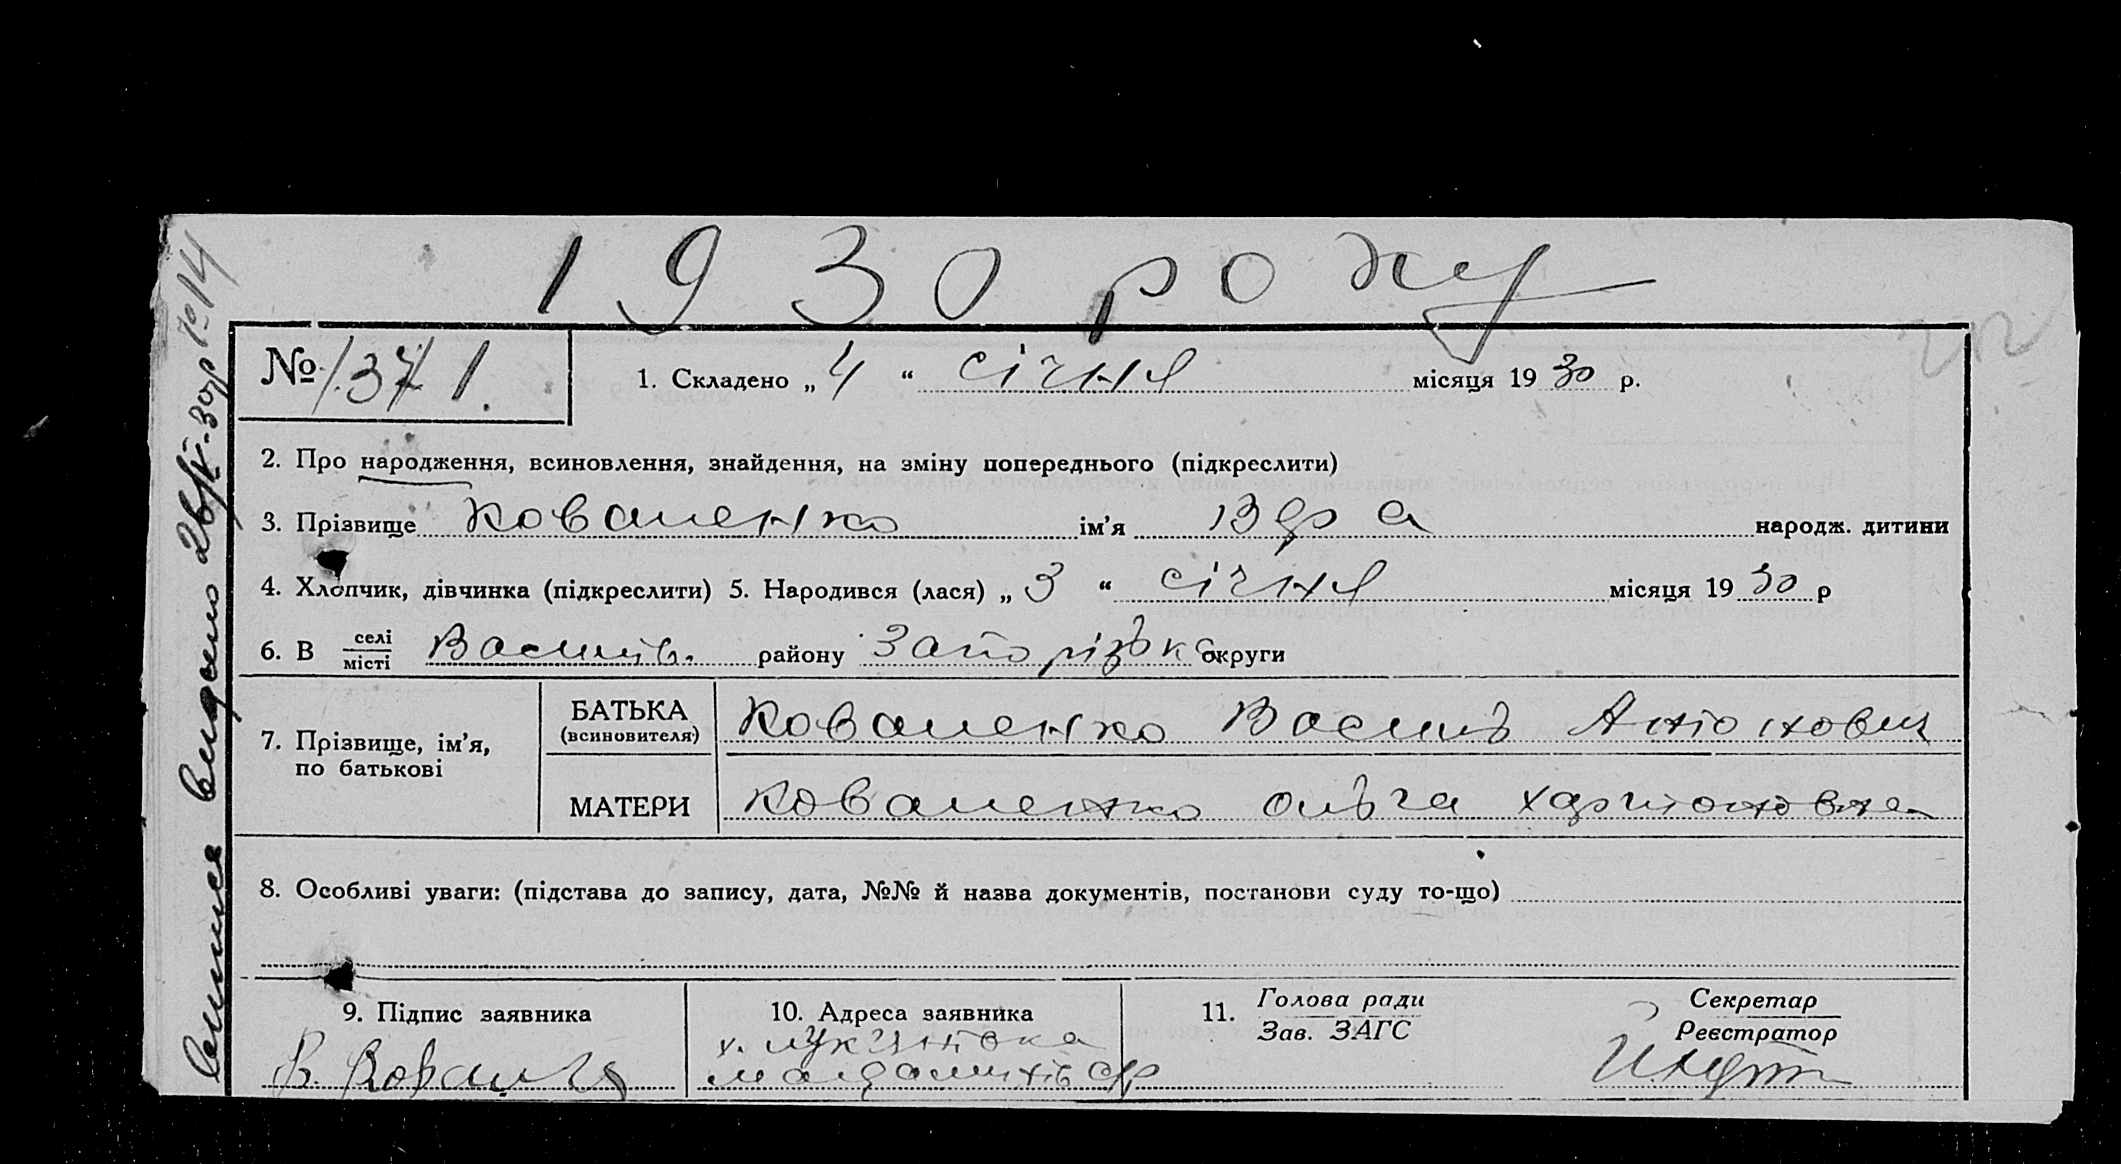 1930 року
№ 1. Складено „ 4 “ січня місяця 19 30 р.
2. Про народження, всиновлення, знайдення, на зміну попереднього (підкреслити)
3. Прізвище Коваленко ім’я народж. дитини
4. Хлопчик, дівчинка (підкреслити) 5. Народився (лася) „ 3 “ січня місяця 19 30 р
6. В селі
місті Василів. району Запорізька округи
7. Прізвище, ім’я,
по батькові
БАТЬКА
(всиновителя)
Коваленко Василь Антонович
МАТЕРИ
Коваленко Ольга Харитоновна
8. Особливі уваги: (підстава до запису, дата, №№ й назва документів, постанови суду то-що)
9. Підпис заявника
10. Адреса заявника
х.
11. Голова ради
Зав. ЗАГС
Секретар
Реєстратор